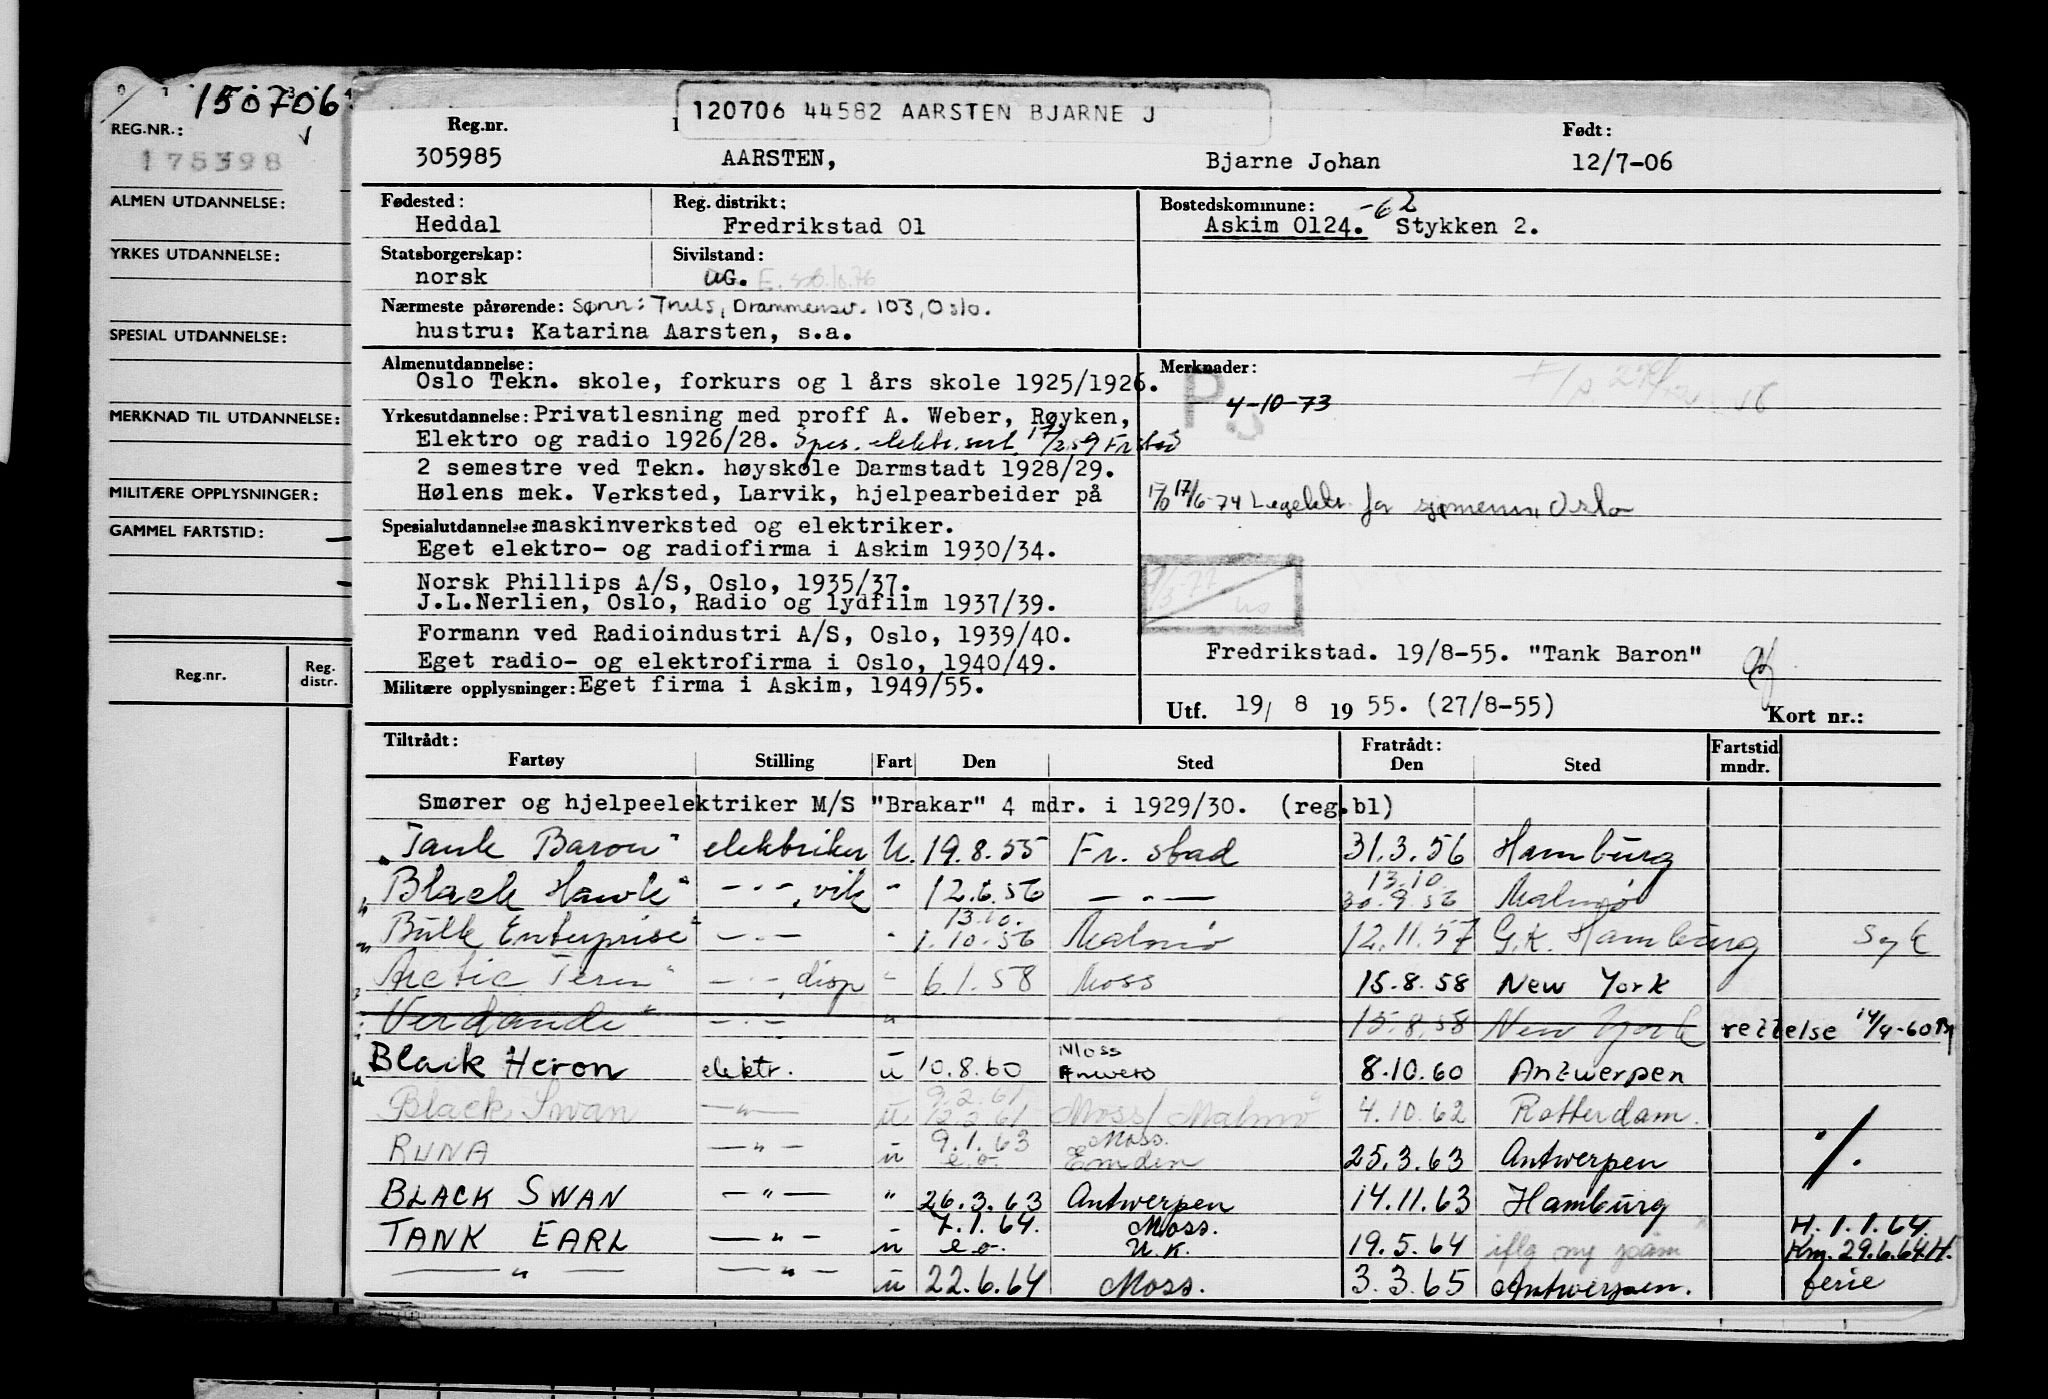 150706
REG.NR.:
175398
ALMEN UTDANNELSE:
YRKES UTDANNELSE:
SPESIAL UTDANNELSE:
MERKNAD TIL UTDANNELSE:
MILITÆRE OPPLYSNINGER:
GAMMEL FARTSTID:
Reg.nr. Reg. distr.
120706 44582 AARSTEN BJARNE J
Reg.nr. Født:
305985 AARSTEN, Bjarne Johan 12/7-06
Fødested: Reg. distrikt: Bostedskommune: -62
Heddal Fredrikstad 01 Askim 0124. Stykken 2.
Statsborgerskap: Sivilstand:
norsk UG.
Nærmeste pårørende: Sønn: Truls, Drammensv. 103, Oslo.
hustru: Katarina Aarsten, s.a.
Almenutdannelse: Merknader:
Oslo Tekn. skole, forkurs og 1 års skole 1925/1926.
4-10-73
Yrkesutdannelse: Privatlesning med proff A. Weber, Røyken,
Elektro og radio 1926/28. Spes. elektr. sert. 17/2.59 Fr.stad
2 semestre ved Tekn. høyskole Darmstadt 1928/29.
Hølens mek. Verksted, Larvik, hjelpearbeider på
17/6-74 Legektr. for sjømenn Oslo
Spesialutdannelse: maskinverksted og elektriker.
Eget elektro- og radiofirma i Askim 1930/34.
Norsk Phillips A/S, Oslo, 1935/37.
J.L.Nerlien, Oslo, Radio og lydfilm 1937/39.
Formann ved Radioindustri A/S, Oslo, 1939/40.
Eget radio- og elektrofirma i Oslo, 1940/49.
Fredrikstad. 19/8-55. "Tank Baron"
Militære opplysninger: Eget firma i Askim, 1949/55.
Utf. 19/ 8 19 55. (27/8-55) Kort nr.:
Tiltrådt: Fratrådt: Fartstid
Fartøy Stilling Fart Den Sted Den Sted mndr.
Smører og hjelpeelektriker M/S "Brakar" 4 mdr. i 1929/30. (reg.bl)
"Tank Baron" elektriker U. 19.8.55 Fr. stad 31.3.56 Hamburg
"Black Hawk" -"-, vik - 12.6.56 -"- 13.10 30.9.56 Malmø
"Bulk Enterprise" -"- - 13.10. 1.10.56 Malmø 12.11.57 G.K. Hamburg Syk
"Arctic Tern" -"-, disp " 6.1.58 Moss 15.8.58 New York
"Verdande" -"- " 15.8.58 New York rettelse 14/9-60
Black Heron elektr. u 10.8.60 Moss 8.10.60 Antwerpen
Black Swan -"- u 9.2.61 12.2.61 Moss/Malmø 4.10.62 Rotterdam.
RUNA -"- u 9.1.63 e.o. Moss. Emden 25.3.63 Antwerpen
BLACK SWAN -"- " 26.3.63 Antwerpen 14.11.63 Hamburg
TANK EARL -"- u 7.1.64. e.o. Moss. U.K. 19.5.64 iflg ny påm H. 1.1.64. Km. 29.6.64.H.
-"- -"- u 22.6.64 Moss. 3.3.65 Antwerpen. ferie